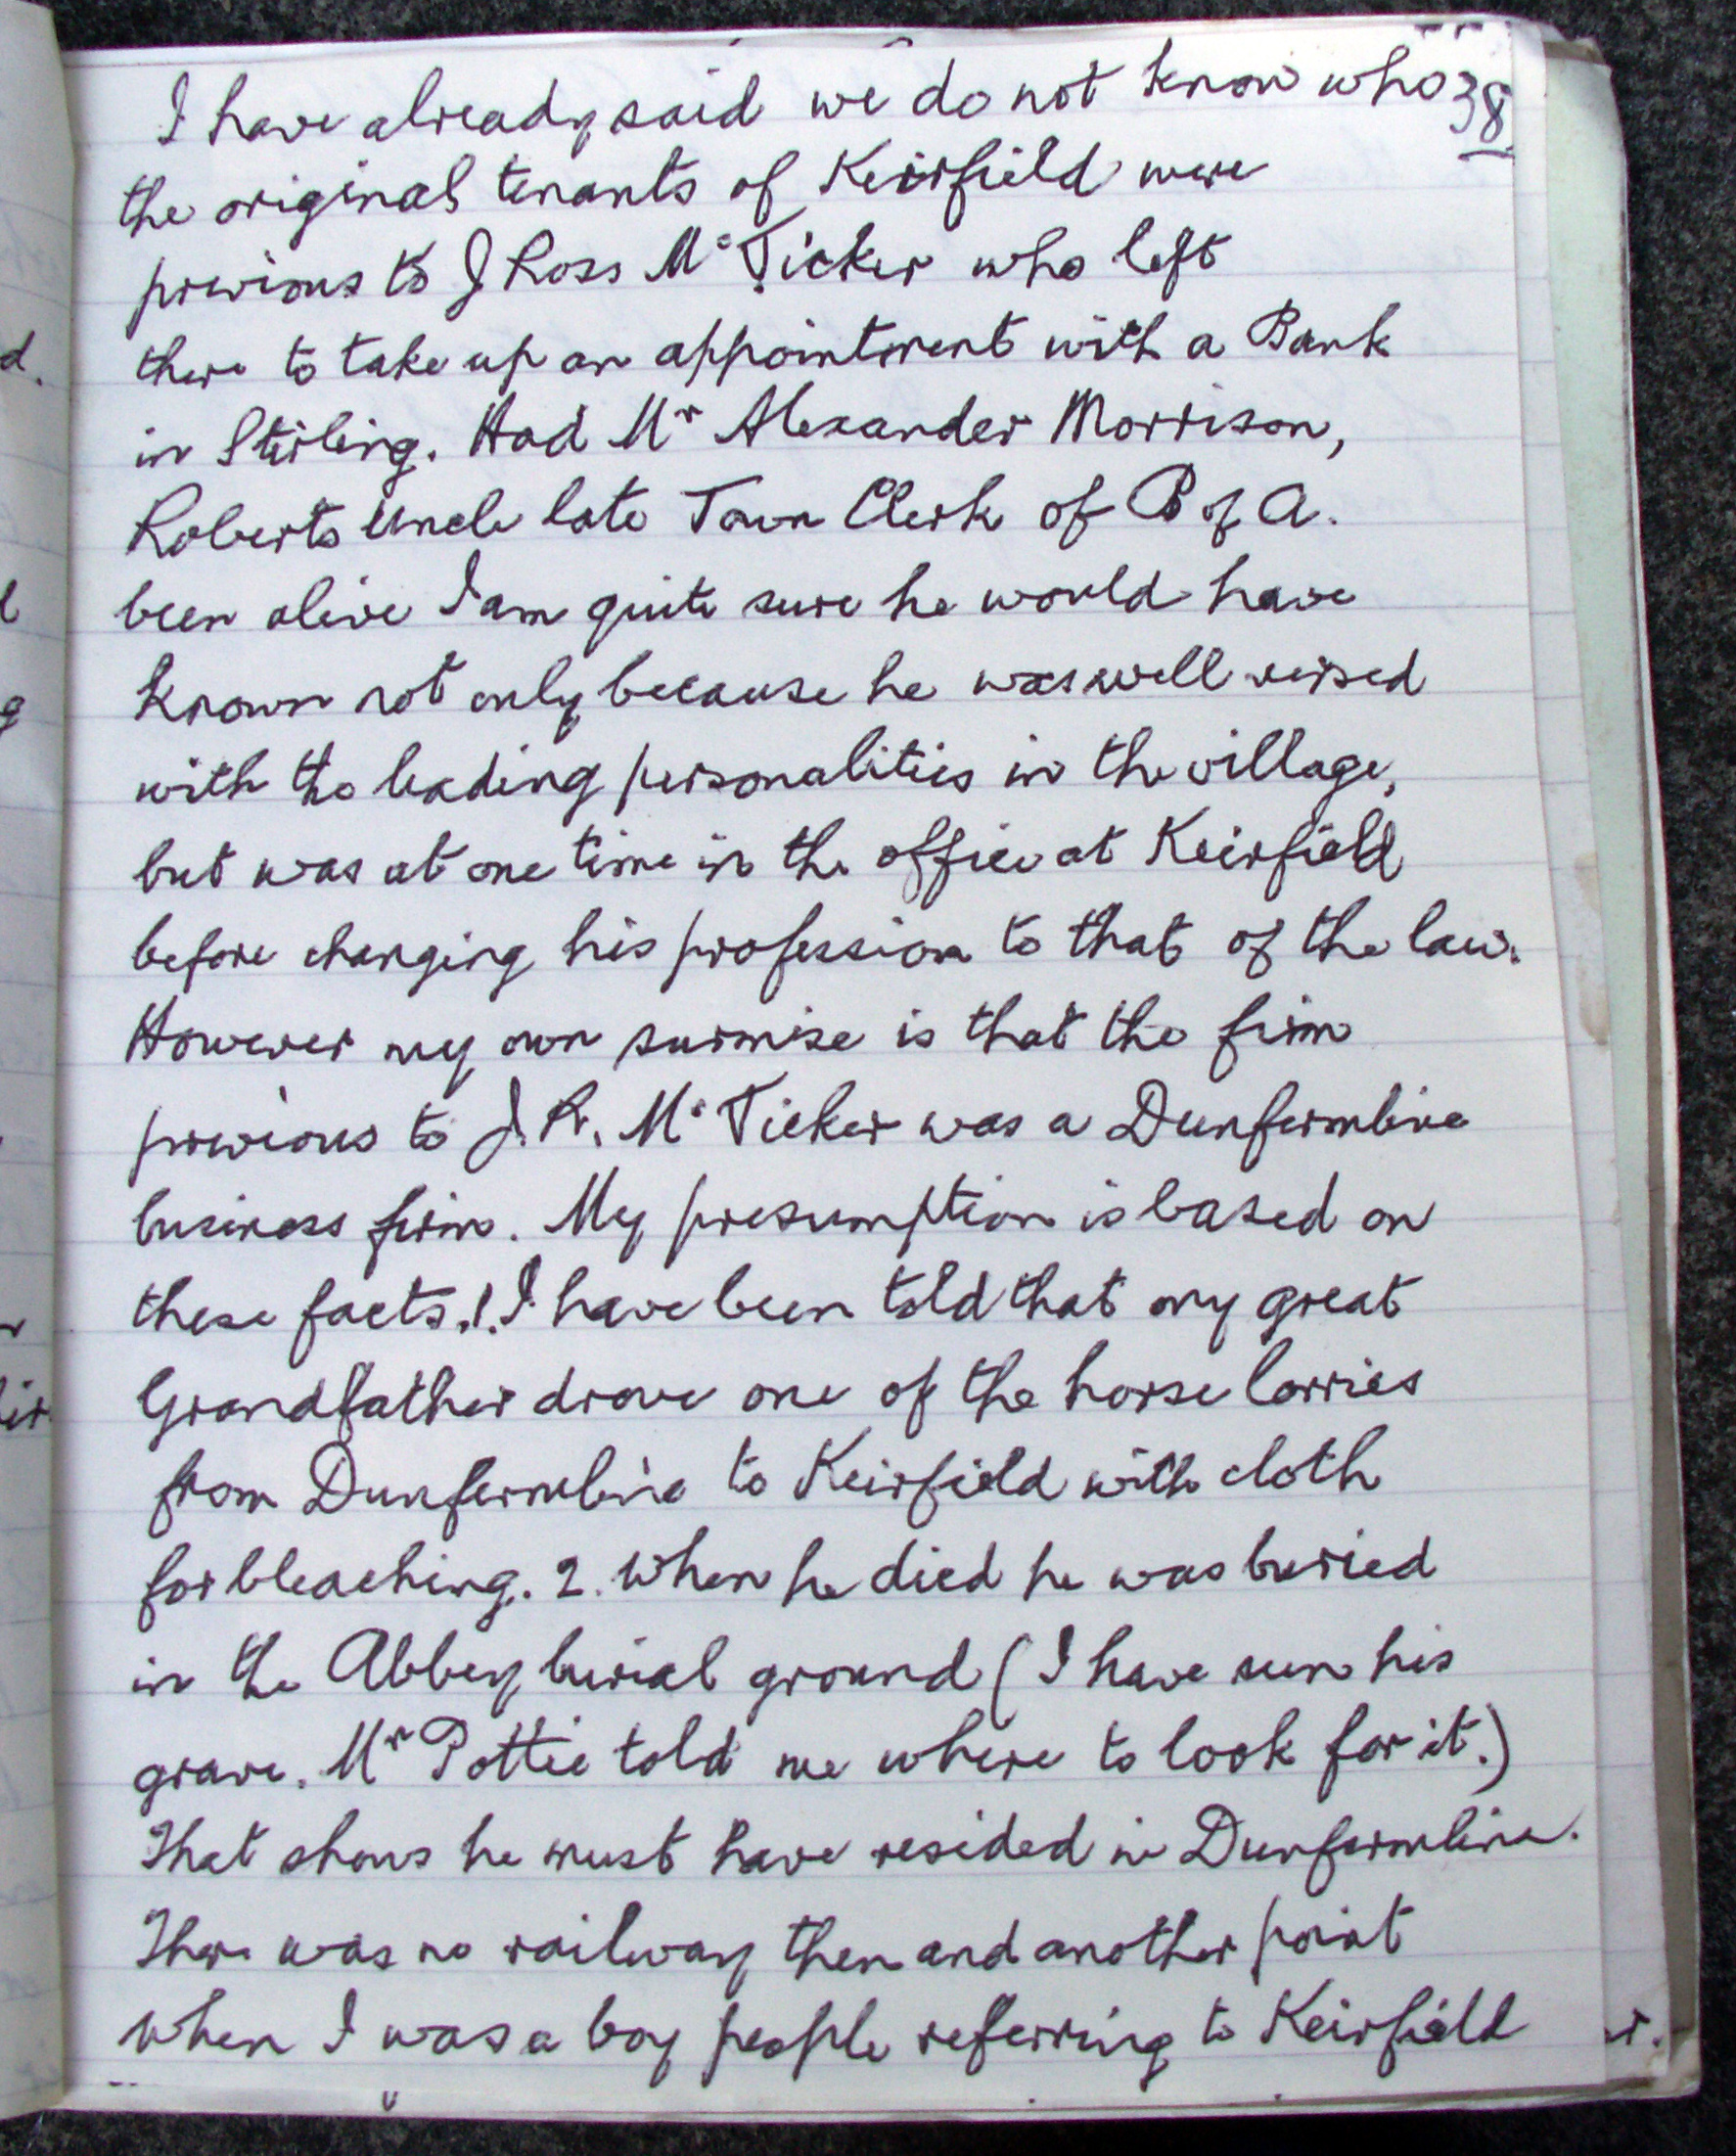 38
I have already said we do not know who
the original tenants of Keirfield were
previous to J Ross Mc Vicker who left
there to take up an appointment with a Bank
in Stirling. Had Mr Alexander Morrison,
Roberts Uncle late Town Clerk of B of A.
been alive I am quite sure he would have
known not only because he was well versed
with the leading personalities in the village,
but was at one time in the office at Keirfield
before changing his profession to that of the law.
However my own surmise is that the firm
previous to J. R. Mc Vicker was a Dunfermline
business firm. My presumption is based on
these facts. 1. I have been told that my great
Grandfather drove one of the horse lorries
from Dunfermline to Keirfield with cloth
for bleaching. 2. When he died he was buried
in the Abbey burial ground (I have seen his
grave. Mr Pottie told me where to look for it.)
That shows he must have resided in Dunfermline.
There was no railway then and another point
when I was a boy people referring to Keirfield